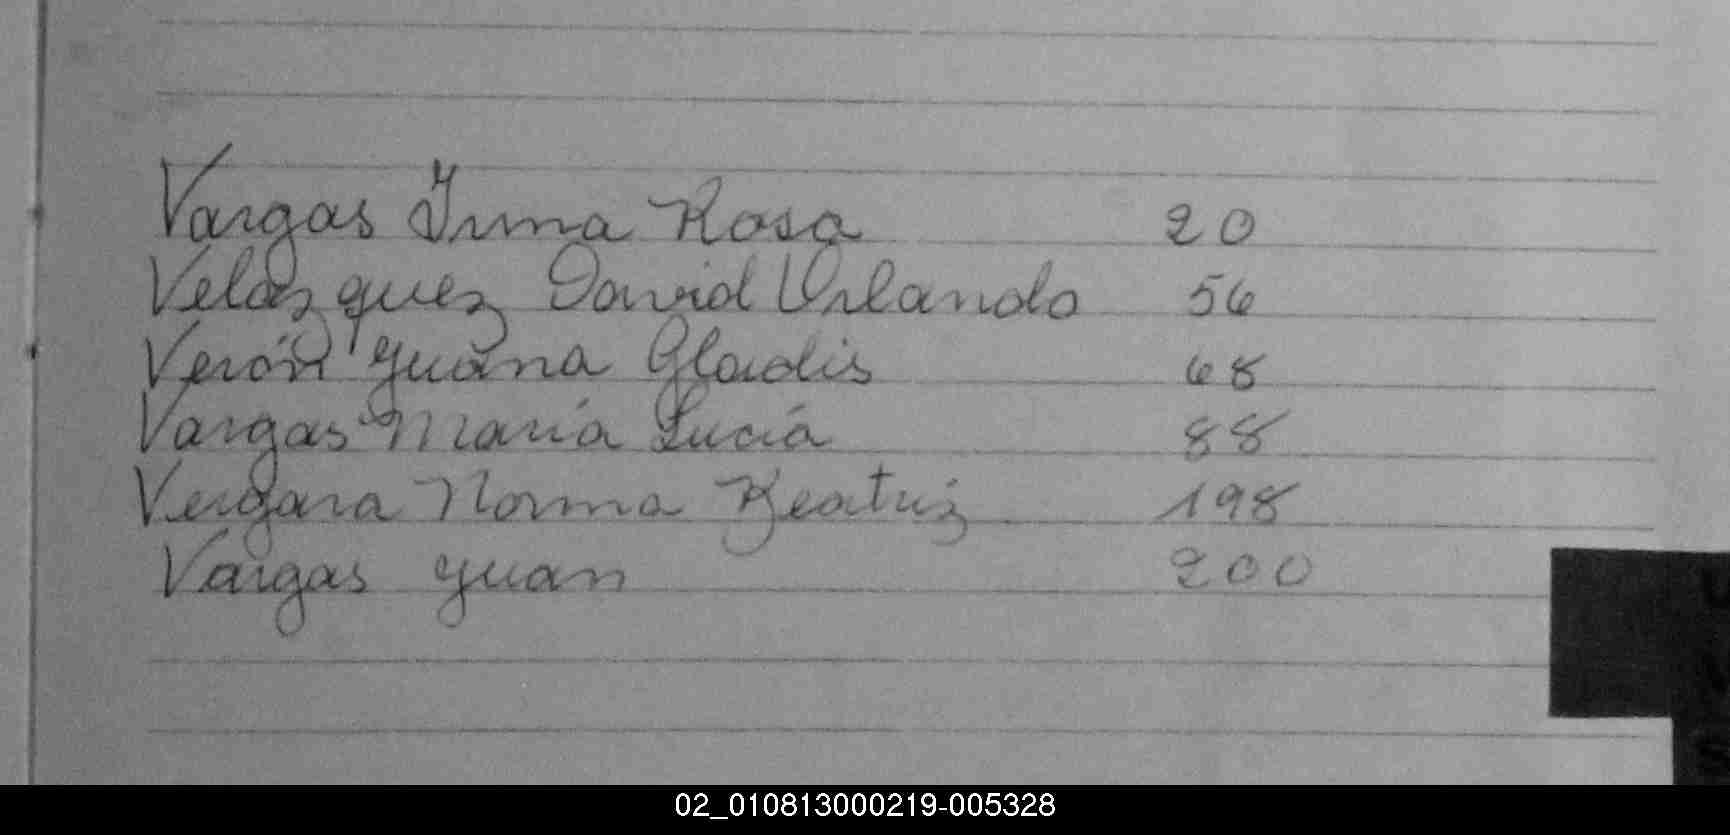 Vargas Irma Rosa 20
Velázquez David Orlando 56
Verón Juana Gladis 68
Vargas María Lucía 88
Vergara Norma Beatriz 198
Vargas Juan 200
02_010813000219-005328